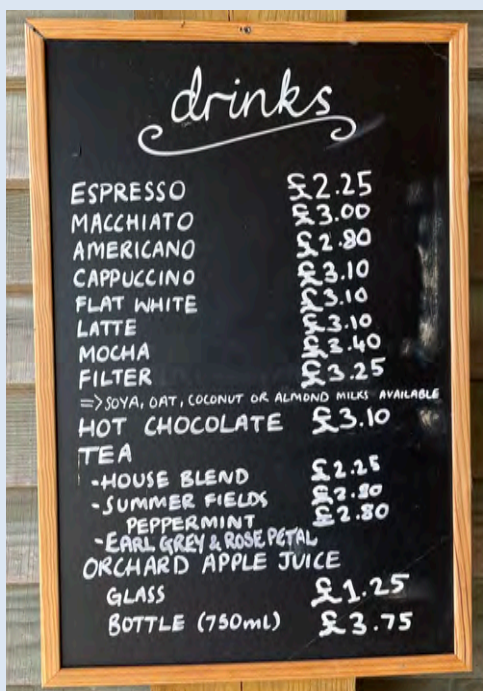 drinks
ESPRESSO £2.25
MACCHIATO £3.00
AMERICANO £2.80
CAPPUCCINO £3.10
FLAT WHITE £3.10
LATTE £3.10
MOCHA £3.40
FILTER £3.25
=> SOYA, OAT, COCONUT OR ALMOND MILKS AVAILABLE
HOT CHOCOLATE £3.10
TEA
-HOUSE BLEND £2.25
-SUMMER FIELDS £2.80
PEPPERMINT £2.80
-EARL GREY & ROSE PETAL
ORCHARD APPLE JUICE
GLASS £1.25
BOTTLE (750ml) £3.75